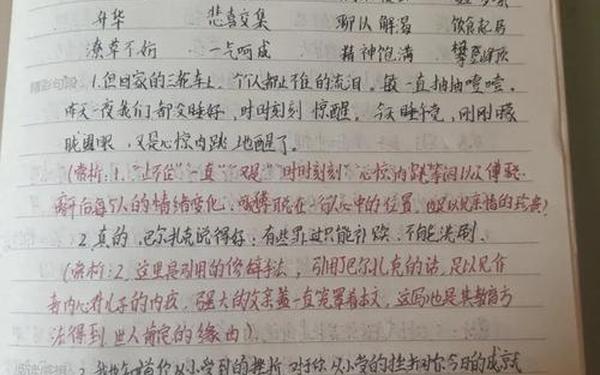 升华 悲喜交集 聊以解渴 饮食起居
潦草不妍 一气呵成 精神饱满 攀登峰顶
精彩句段 1.但回家的三轮车上,个个人都止不住的流泪。敏一直抽抽噎噎。
昨天一夜我们都没睡好,时时刻刻惊醒。今天睡午觉,刚刚朦
胧合眼,又是心惊肉跳地醒了。
(赏析:1."止不住""一直""又是""时时刻刻""心惊肉跳等词以以傅聪
离开后每个人的情绪变化,傅聪在心中的位置,也足以见亲情的珍贵)
2.真的,巴尔扎克说得好:有些罪过只能补赎,不能洗刷。
(赏析:2.这里是引用的修辞手法,引用了巴尔扎克的话,足以见作
者内心对儿子的内疚,强大的父亲盖一直笼罩着本文,这写也是其教育方
法得到世人肯定的缘由)。
从小学到的挫折 对于你 从小学的挫折对你今日的成就